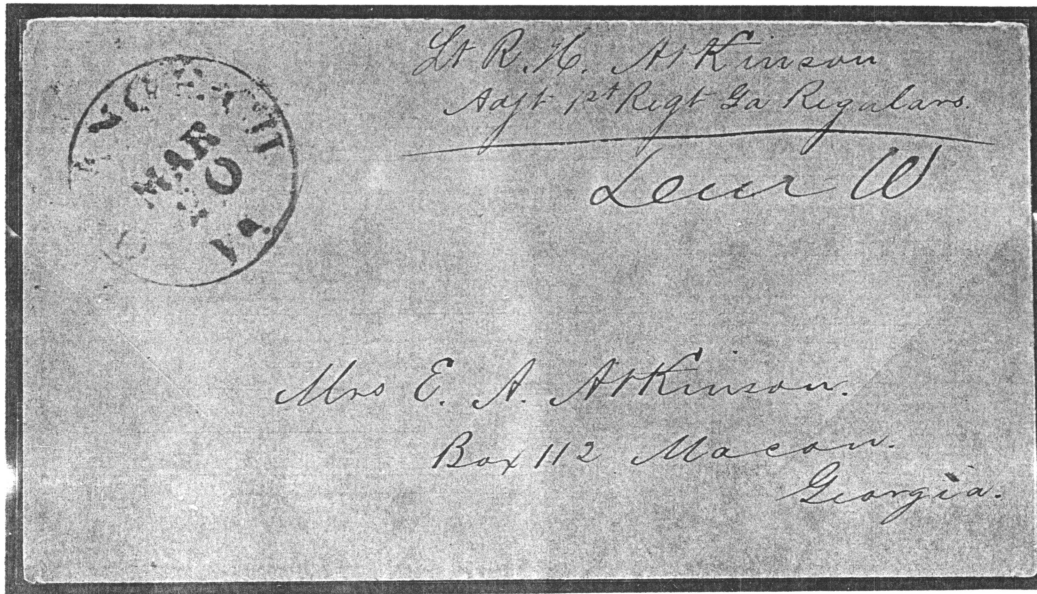 Lt R. H. Atkinson
Adjt 1st Regt Ga Regulars.
MAR
Va.
Mrs E. A. Atkinson.
Box 112 Macon.
Georgia.